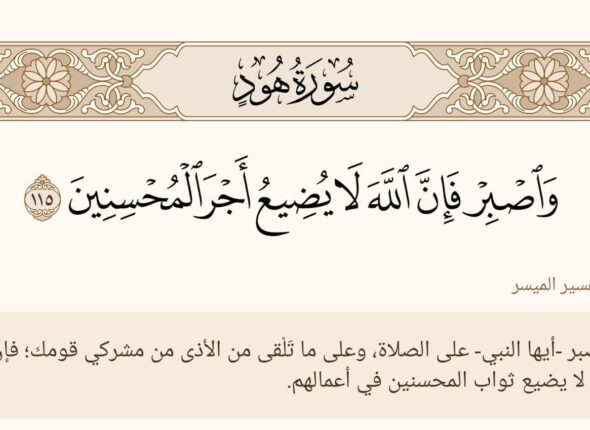 سُورَةُ هُودٍ
وَٱصۡبِرۡ فَإِنَّ ٱللَّهَ لَا يُضِيعُ أَجۡرَ ٱلۡمُحۡسِنِينَ ١١٥
الميسر
أيها النبي- على الصلاة، وعلى ما تَلْقى من الأذى من مشركي قومك؛
لا يضيع ثواب المحسنين في أعمالهم.